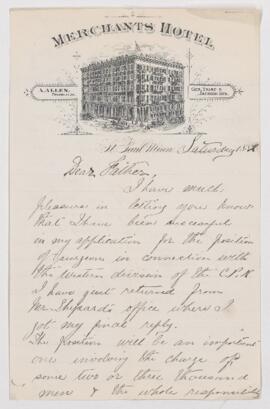 MERCHANTS HOTEL
A. ALLEN,
St. Paul Minn Saturday
Dear Father
I have much
pleasure in letting you know
that I have been successful
in my application for the position
of Surgeon in connection with
the Western division of the C.P.R
I have just returned from
Mr Shepard's office where I
got my final reply.
The position will be an important
one involving the charge of
some two or three thousand
men & the whole responsibility